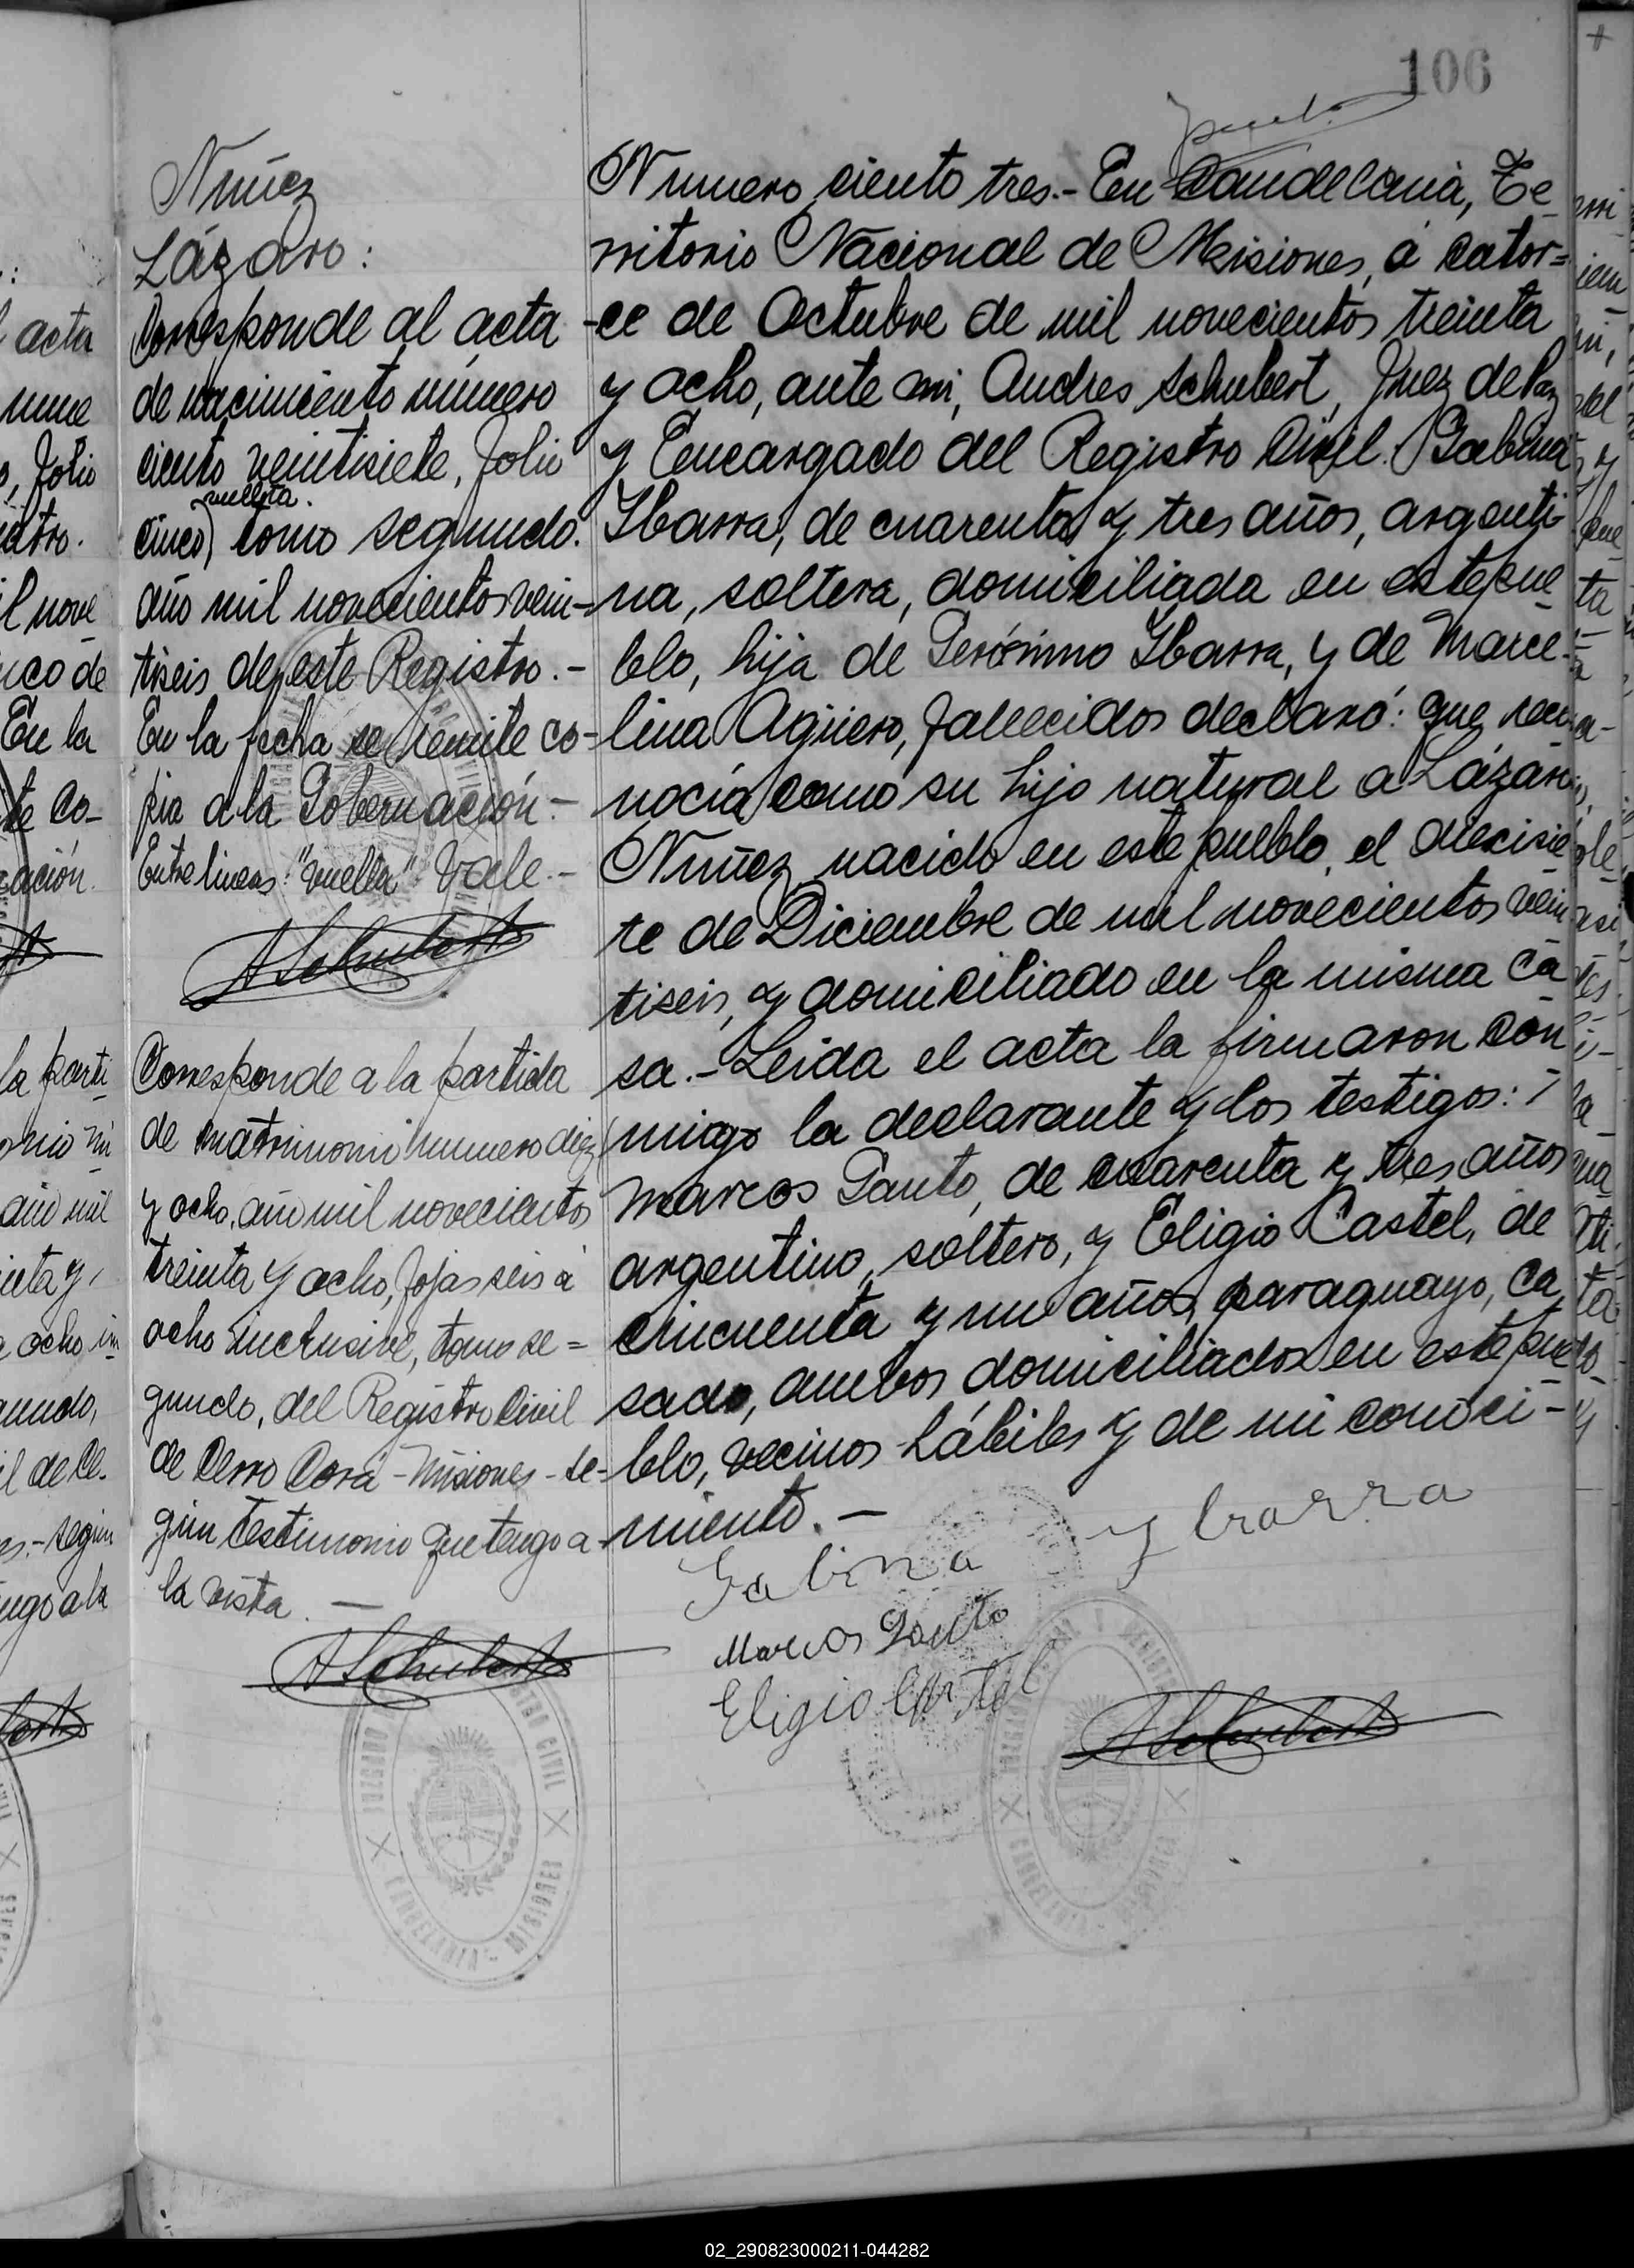 106
Nuñez
Lázaro:
Corresponde al acta
de nacimiento número
ciento veintisiete, folio
vuelta.
cinco, tomo segundo.
año mil novecientos vein-
tiseis de este Registro.-
En la fecha se remite co-
pia a la Gobernación.-
Entre lineas: "vuelta" Vale.-
ASchubert
Corresponde a la partida
de matrimonio numero diez
y ocho, año mil novecientos
treinta y ocho, fojas seis a
ocho inclusive, tomo se=
gundo, del Registro Civil
de Cerro Corá - Misiones - se=
gún testimonio que tengo a
la vista. —
ASchubert
Numero ciento tres.- En Candelaria, Te-
rritorio Nacional de Misiones, á cator=
-ce de Octubre de mil novecientos treinta
y ocho, ante mi, Andres Schubert, Juez de Paz
y Encargado del Registro Civil. Gabina
Ibarra, de cuarenta y tres años, argenti-
na, soltera, domiciliada en este pue-
blo, hija de Gerónimo Ibarra, y de Marce-
lina Agüero, fallecidos declaró: que reco-
nocía como su hijo natural a Lázaro
Nuñez nacido en este pueblo, el diecisie-
te de Diciembre de mil novecientos vein-
tiseis, y domiciliado en la misma ca-
sa.- Leida el acta la firmaron con-
migo la declarante y los testigos:
Marcos Gauto, de cuarenta y tres años
argentino, soltero, y Eligio Castel, de
cincuenta y un años, paraguayo, ca-
sado, ambos domiciliados en este pue-
blo, vecinos hábiles y de mi conoci-
miento. —
Gabina Ybarra
Marcos Gauto
Eligio Castel
ASchubert
JUZGADO
REGISTRO CIVIL
CANDELARIA - MISIONES
02_290823000211-044282